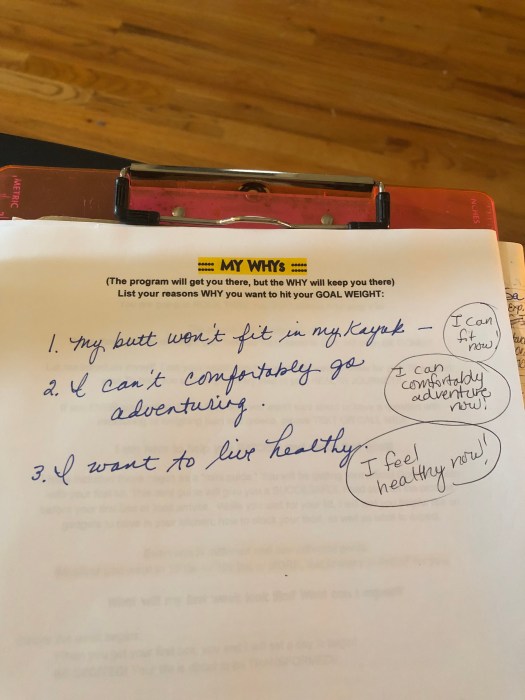 METRIC
INCHES
MY WHYs
(The program will get you there, but the WHY will keep you there)
List your reasons WHY you want to hit your GOAL WEIGHT:
1. My butt won't fit in my Kayak –
I can
fit
now!
2. I can't comfortably go
adventuring.
I can
comfortably
adventure
now!
3. I want to live healthy.
I feel
healthy now!